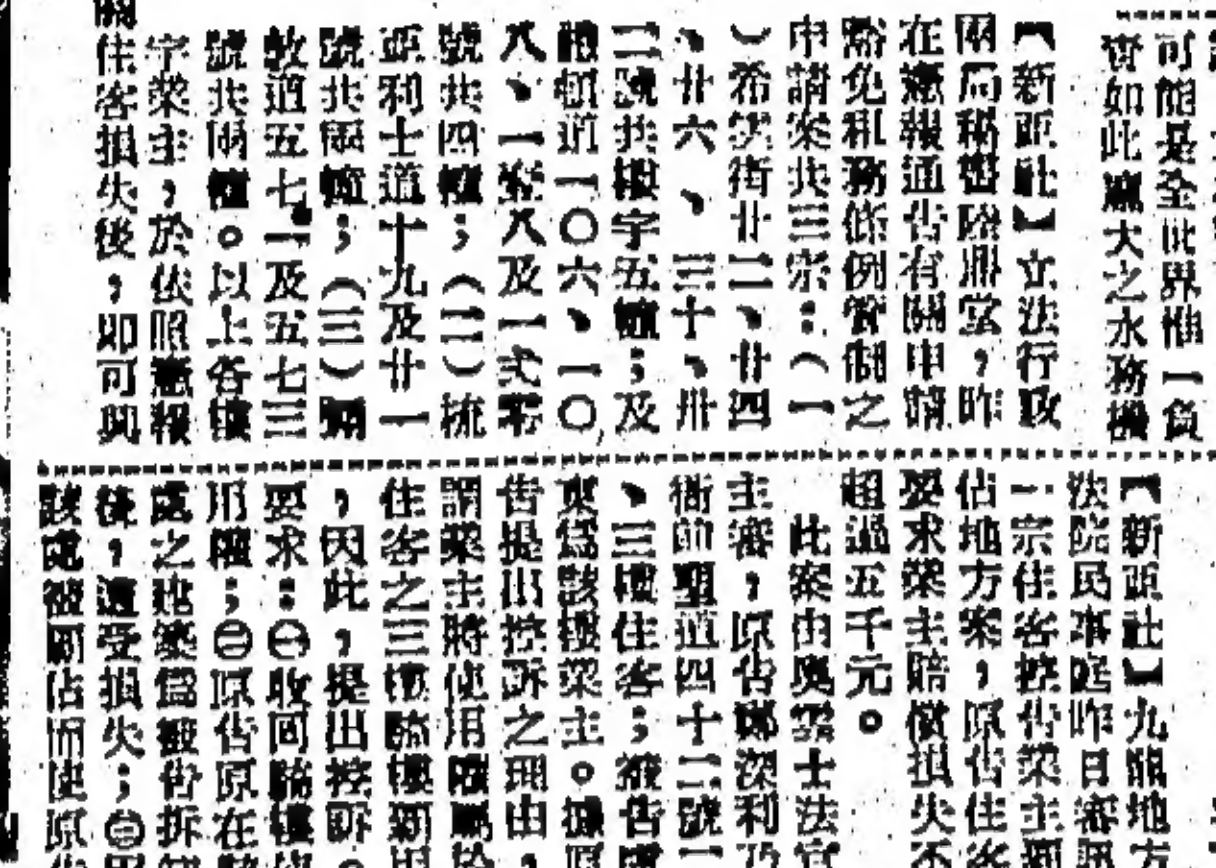 可能是全世界惟一負
責如此龐大之水務機
【新亞社】立法行政
兩局秘書陸鼎堂,昨
在憲報通告有關申請
豁免租務條例管制之
申請案共三宗:(一
)希雲街廿二、廿四
、廿六、三十、卅
二號共樓宇五幢;及
禮頓道一〇六、一〇
八、一零八及一式零
號共四幢;(二)梳
亞利士道十九及廿一
號共兩幢;(三)彌
敦道五七一及五七三
號共兩幢。以上各樓
宇業主,於依照憲報
住客損失後,即可與
【新亞社】九龍地方
法院民事庭昨日審訊
一宗住客控告業主霸
佔地方案,原告住客
要求業主賠償損失不
超過五千元。
此案由奧雲士法官
主審,原告鄭深利乃
衙前圍道四十二號二
、三樓住客;被告
東為該樓業主。據原
告提出控訴之理由,
謂業主將使用權屬於
住客之三樓騎樓
,因此,提出控訴。
要求:㊀收回騎樓使
用權;㊁原告原在騎
處之建築為被告拆卸
後,遭受損失;㊂因
該處被霸佔而使原告